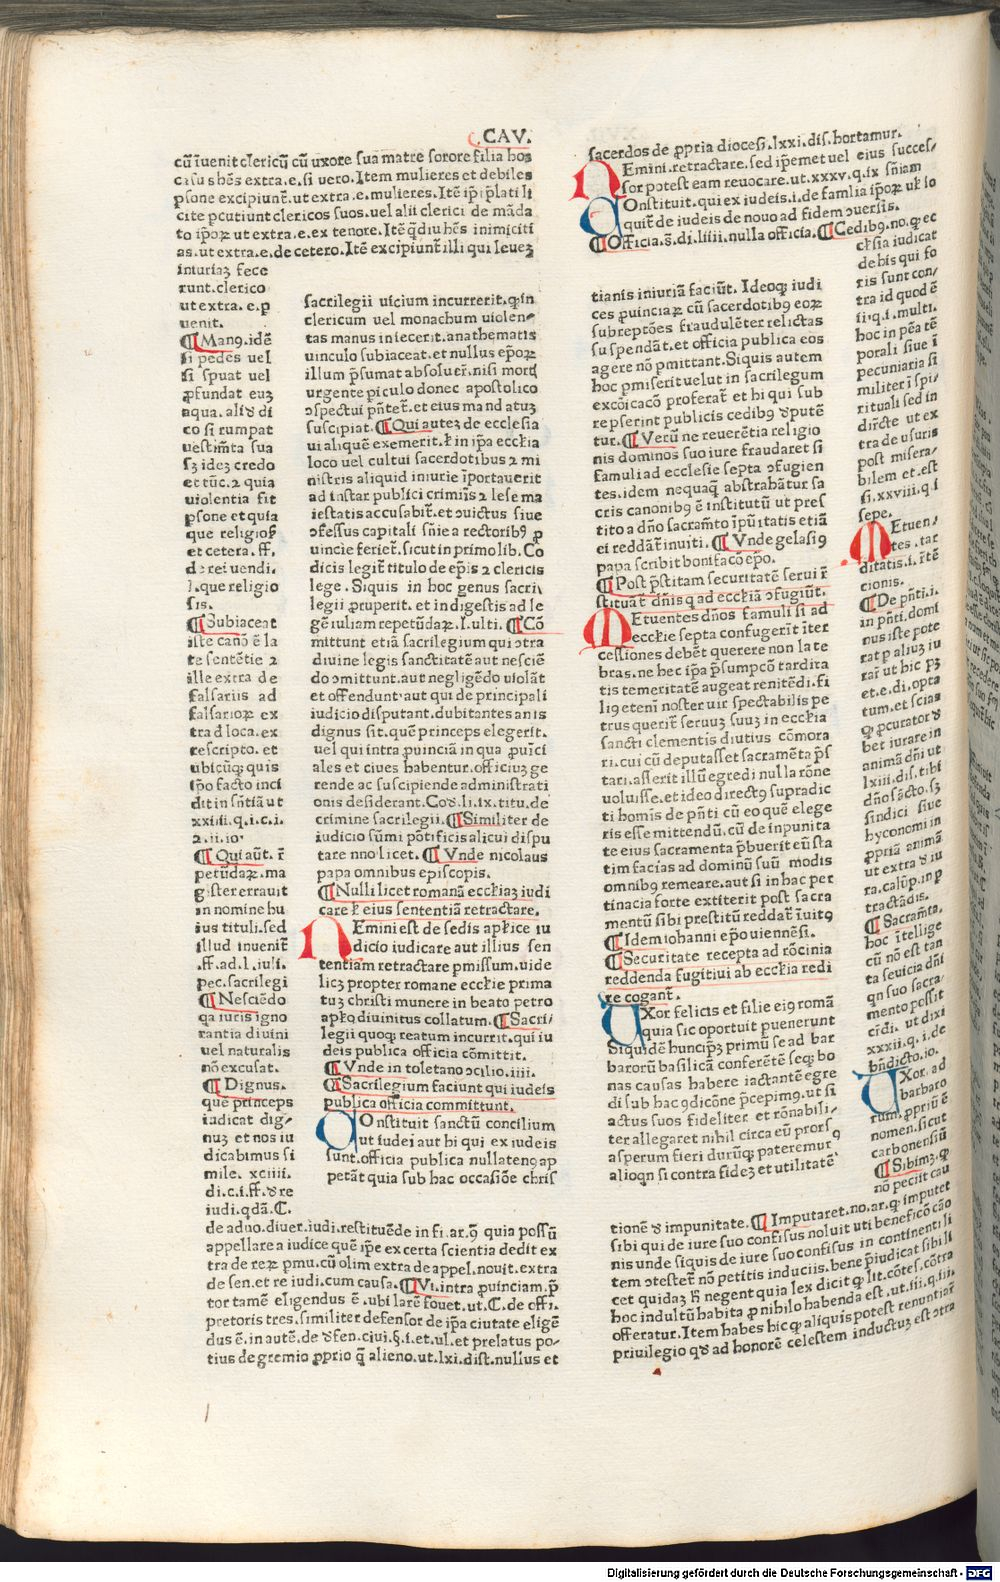 .CAV.
cū īuenit clericū cū uxore sua matre sorore filia hos
casus hn̄s extra.e.si uero.Item mulieres et debiles
ꝑsone excipiunt̄.ut extra.e.mulieres.Itē ip̄i p̄lati li
cite ꝑcutiunt clericos suos.uel alii clerici de māda
to ip̄oꝝ ut extra.e.ex tenore.Itē q̄diu hn̄s inimiciti
as.ut extra.e.de cetero.Itē excipiunt̄ illi qui leuez
iniuriaꝫ fece
runt.clerico
ut extra.e.p
uenit.
¶ Man9.idē
si pedes uel
si spuat uel
ꝓfundat euꝫ
aqua.
co si rumpat
uestim̄ta sua
sꝫ idez credo
et tūc.2 quia
uiolentia fit
ꝑsone et quia
que religiosꝫ
et cetera.ff.
de rei uendi.
l.que religio
sis.
¶ Subiaceat
iste canō ē la
te sentētie 2
ille extra de
falsariis ad
falsarioꝝ ex
tra d̄ loca.ex
rescripto.et
ubicūqꝫ quis
ip̄o facto inci
dit in sn̄tiā ut
xxiiii.q.i.c.i.
2.ii.io'
¶ Qui aūt.r̄
petūdaꝝ.ma
gister errauit
in nomine hu
ius tituli.sed
illud inuenit̄
.ff.ad.l.iuli.
pec.sacrilegi
¶ Nesciēdo
qa iuris igno
rantia diuini
uel naturalis
nō excusat.
¶ Dignus.
quē princeps
iudicat dig/
nuꝫ et nos iu
dicabimus si
mile. xciiii.
di.c.i.ff.de re
iudi.q̄dā.C.
sacrilegii uicium incurrerit.qͥ in
clericum uel monachum uiolen/
tas manus iniecerit.anathematis
uinculo subiaceat.et nullus ep̄oꝝ
illum p̄sumat absoluer̄.nisi mort̄
urgente ꝑiculo donec apostolico
ↄspectui p̄ntet̄.et eius mandatuꝫ
suscipiat.¶ Qui autez de ecclesia
ui aliquē exemerit.ł in ip̄a eccłia
loco uel cultui sacerdotibus 2 mi
nistris aliquid iniurie īportauerit
ad instar publici crimīs 2 lese ma
iestatis accusabit̄.et ↄuictus siue
ↄfessus capitali sn̄ie a rectorib9 ꝓ
uincie feriet̄.sicut in primo lib.Co
dicis legit̄ titulo de ep̄is 2 clericis
lege .Siquis in hoc genus sacri
legii ꝓruperit.et in digestis ad le
gē iuliam repetūdaꝝ.l.ulti.¶ Cō
mittunt etiā sacrilegium qui ↄtra
diuine legis sanctitatē aut nesciē
do ↄmittunt.aut negligēdo uiolāt
et offendunt.aut qui de principali
iudicio disputant.dubitantes an is
dignus sit.quē princeps elegerit.
uel qui intra ꝓuinciā in qua ꝓuīci
ales et ciues habentur.officiuꝫ ge
rende ac suscipiende administrati
onis desiderant.Cod̄.li.ix.titu.de
crimine sacrilegii.¶ Similiter de
iudicio sūmi pōtificis alicui dispu
tare nno licet.¶ Vnde nicolaus
papa omnibus episcopis.
¶ Nulli licet romanā eccłiaꝫ iudi
care ł eius sententiā retractare.
NEmini est de sedis apłice iu
dicio iudicare aut illius sen
tentiam retractare ꝑmissum.uide
licꝫ propter romane eccłie prima
tuꝫ christi munere in beato petro
apłꝍ diuinitus collatum.¶ Sacri/
legii quoqꝫ reatum incurrit.qui iu
deis publica officia cōmittit.
¶ Vnde in toletano ↄcilio.iiii.
¶ Sacrilegium faciunt qui iudeis
publica officia committunt.
COnstituit sanctū concilium
ut iudei aut hi qui ex iudeis
sunt.officia publica nullaten9 ap
petāt quia sub hac occasiōe chris
de ādno.diuer.iudi.restituēde in fi.ar.9̄ quia possū
appellare a iudice quē ip̄e ex certa scientia dedit ex
tra de reꝝ ꝑmu.cū olim extra de appel.nouit.extra
de sen.et re iudi.cum causa.¶ Vi.intra ꝓuinciam.p̄
tor tamē eligendus ē .ubi larē fouet.ut.C.de offi.
pretoris tres.similiter defensor de ip̄a ciutate eligē
dus ē.in autē.de defen.ciui.§.i.et.ul.et prelatus po/
tius de gremio ꝓprio q̄ alieno.ut.lxi.dist.nullus et
sacerdos de ꝓpria diocesi.lxxi.dis.hortamur.
NEmini.retractare.sed ip̄emet uel eius succes/
sor potest eam reuocare.ut.xxxv.q.ix sn̄iam
COnstituit.qui ex iudeis.i.de familia ip̄oꝝ uł io
quit̄ de iudeis de nouo ad fidem ↄuersis.
¶ Officia.s̄.di.liiii.nulla officia.¶ Cedib9.no.qꝫ ec
tianis iniuriā faciūt. Ideoqꝫ iudi
ces ꝓuinciaꝝ cū sacerdotib9 eoꝝ
subreptōes fraudulēter relictas
suspendāt.et officia publica eos
agere nō ꝑmittant.Siquis autem
hoc ꝑmiserit uelut in sacrilegum
excōicacō proferat̄ et hi qui sub
repserint publicis cedib9 deputē
tur.¶ Verū ne reuerētia religio
nis dominos suo iure fraudaret si
famuli ad ecclesie septa ↄfugien
tes.idem nequaq̄ abstrabāt̄ur sa
cris canonib9 ē institutū ut pres
tito a dn̄o sacram̄to īpūitatis etiā
ei reddāt̄ inuiti.¶ Vnde gelasi9
papa scribit bonifacō ep̄o.
¶ Post p̄stitam securitatē serui r̄
stituāt̄ dn̄is q ad eccłiā ↄfugiūt.
MEtuentes dn̄os famuli si ad
eccłie septa confugerīt īter
cessiones debēt querere non late
bras.ne hec ip̄a p̄sumpcō tardita
tis temeritatē augeat renitēdi.fi
li9 etenī noster uir spectabilis pe
trus querit̄ seruuꝫ suuꝫ in eccłia
sancti clementis diutius cōmora
ri.cui cū deputasset sacramēta p̄s
tari.asserit illū egredi nulla rōne
uoluisse.et ideo direct9 supradic
ti homis de p̄nti cū eo quē elege
ris esse mittendū.cū de inpunita
te eius sacramenta p̄buerit eū sta
tim facias ad dominū suū modis
omnib9 remeare.aut si in hac per
tinacia forte extiterit post sacra
mentū sibi prestitū reddat̄ īuit9
¶ Idem iohanni ep̄o uiennēsi.
¶ Securitate recepta ad rōcinia
reddenda fugitiui ab eccłia redi
re cogant̄.
UXor felicis et filie ei9 romā
quia sic oportuit puenerunt
Siquidē huncip̄ꝫ primū se ad bar
barorū basilicā conferētē seqꝫ bo
nas causas habere iactantē egre
di sub hac 9dicōne p̄cepim9.ut si
actus suos fideliter et rōnabili/
ter allegaret nihil circa eū prors9
asperum fieri durūqꝫ pateremur
alioqn si contra fidez et utilitatē
clesia iudicat
de his qui fo
ris sunt con/
tra id quod ē
ii.q.i.multi.
hoc in pēa tē
porali siue ī
pecuniaria si
militer ī spi/
rituali sed in
dir̄cte ut ex
tra de usuris
post misera/
bilem et.est
si.xxviii.q.i
sepe.
MEtuen/
tes.tar
ditatis.i.r̄tē
cionis.
¶ De pn̄ti.i.
in pn̄ti.domi
nus iste pote
rat ꝑ aliuꝫ iu
rar̄ ut hic pꝫ
et.e.di.opta
tum.et scias
qͥ ꝓcurator de
bet iurare in
animā dn̄i ut
lxiii.dis.tibi
dn̄o sācto.sꝫ
sindici siue
hyconomi in
ꝓpriā animā
ut extra de iu
ra.calūp.in p
tractādis.
¶ Sacram̄ta.
hoc ītellige
cū nō est tan
ta seuicia dn̄i
qn suo sacra/
mento possit
cr̄di.ut dixi
xxxii.q.i.de
bn̄dicto.io.
UXor.ad
barbaro
rum.ꝓpriū ē
nomen.sicut
carbonensiū
¶ Sibimꝫ.qꝫ
nō peciit cau
tionē de impunitate.¶ Imputaret.no.ar.qͥ imputet
sibi qui de iure suo confisus noluit uti beneficō cāo
nis unde siquis de iure suo confisus in continenti li
tem ↄtestet̄ nō petitis induciis.bene p̄iudicat sibi li
cet quidaꝫ h̄ negent quia lex dicit qͥ lit̄.cōtes.cōtra
hoc indultū habita ꝓ nihilo habenda est.ut.iii.q.iii.
offeratur.Item habes hic qͥ aliquis potest renuntiar̄
priuilegio qd̄ ad honorē celestem inductuꝫ est ↄtra
Digitalisierung gefördert durch die Deutsche Forschungsgemeinschaft - DFG